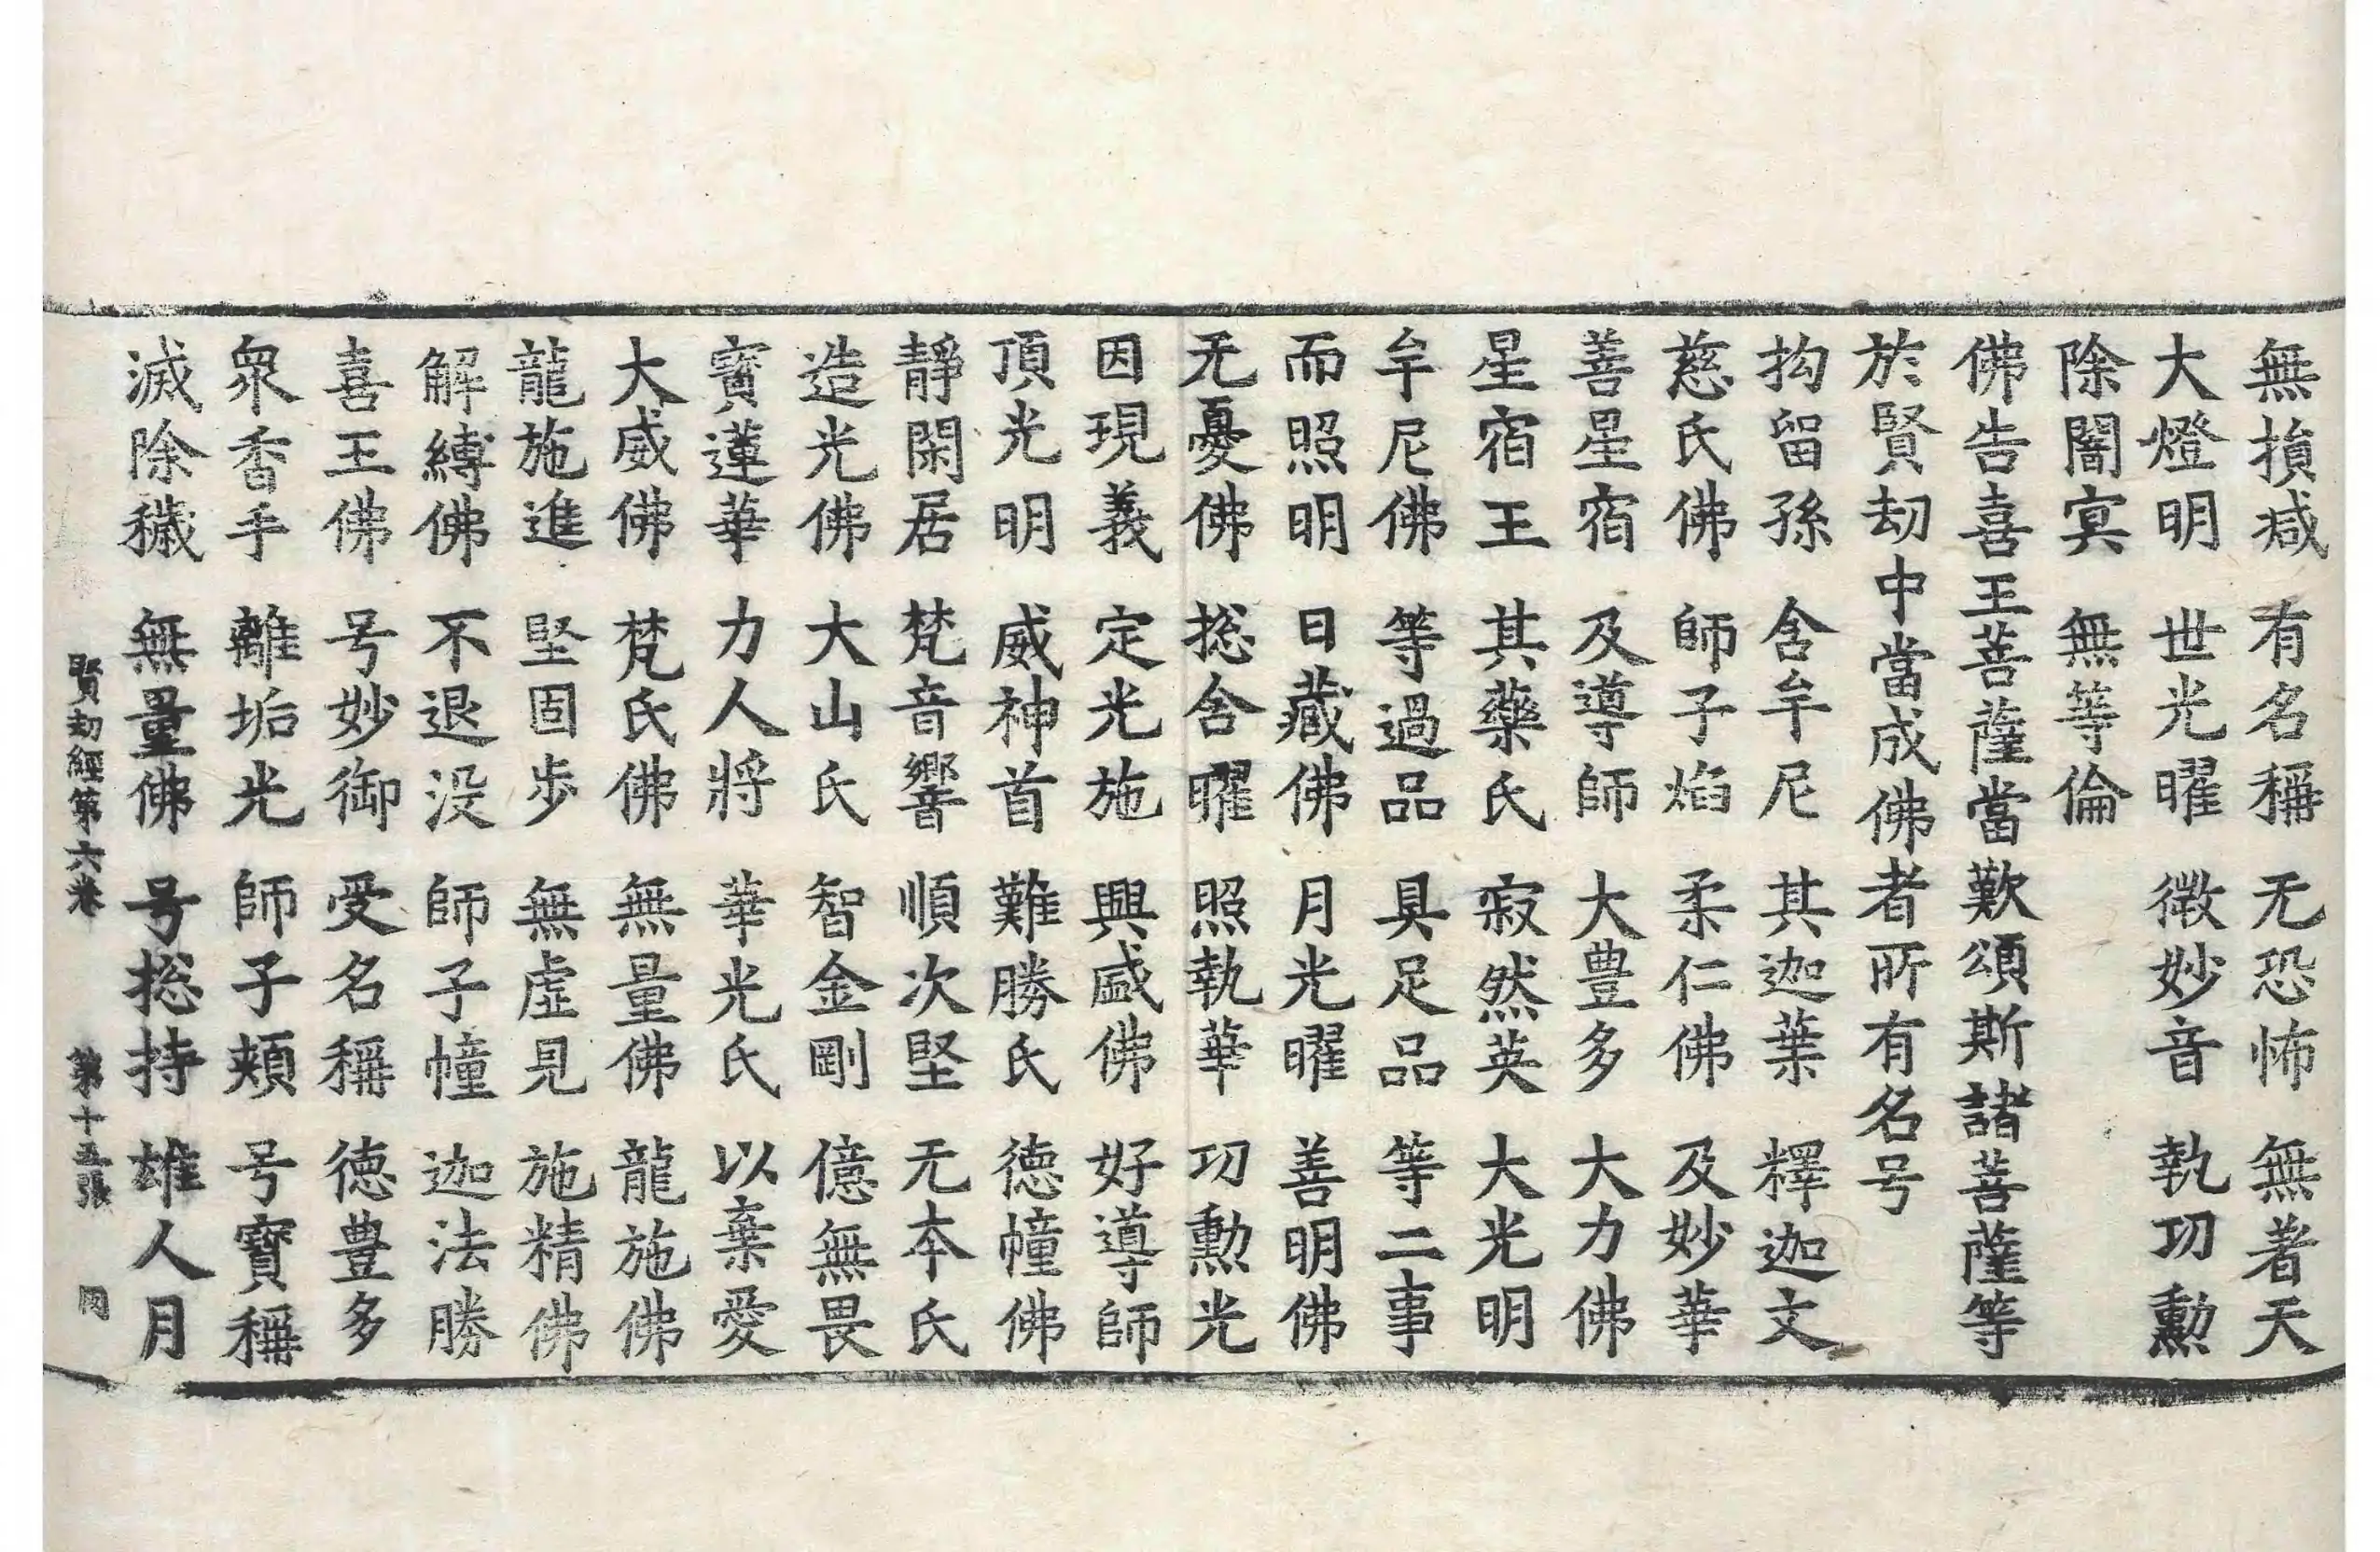 無損减 有名稱 无恐怖 無著天
大燈明 世光曜 微妙音 執功勳
除闇冥 無等倫
佛告喜王菩薩當歎頌斯諸菩薩等
於賢劫中當成佛者所有名号
拘留孫 含牟尼 其迦葉 釋迦文
慈氏佛 師子焰 柔仁佛 及妙華
善星宿 及導師 大豊多 大力佛
星宿王 其藥氏 寂然英 大光明
牟尼佛 等過品 具足品 等二事
而照明 日藏佛 月光曜 善明佛
无憂佛 捴含曜 照執華 功勳光
因現義 定光施 興盛佛 好導師
頂光明 威神首 難勝氏 德幢佛
靜閑居 梵音響 順次堅 无本氏
造光佛 大山氏 智金剛 億無畏
寳蓮華 力人將 華光氏 以棄愛
大威佛 梵氏佛 無量佛 龍施佛
龍施進 堅固步 無虛見 施精佛
解縛佛 不退没 師子幢 迦法勝
喜王佛 号妙御 受名稱 德豊多
衆香手 離垢光 師子頰 号寳稱
滅除穢 無量佛 号捴持 雄人月
賢劫經第六卷 第十五張 同